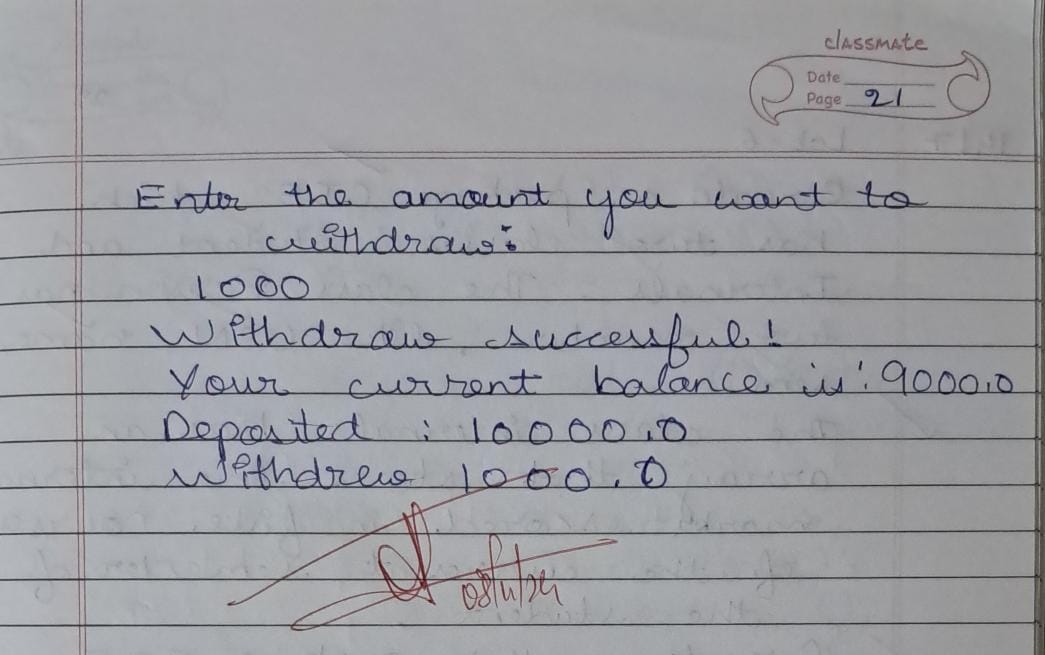 classmate
Date
Page 21
Enter the amount you want to
withdraw:
1000
Withdraw successful!
Your current balance is: 9000.0
Deposited : 10000.0
Withdrew 1000.0
08/11/24